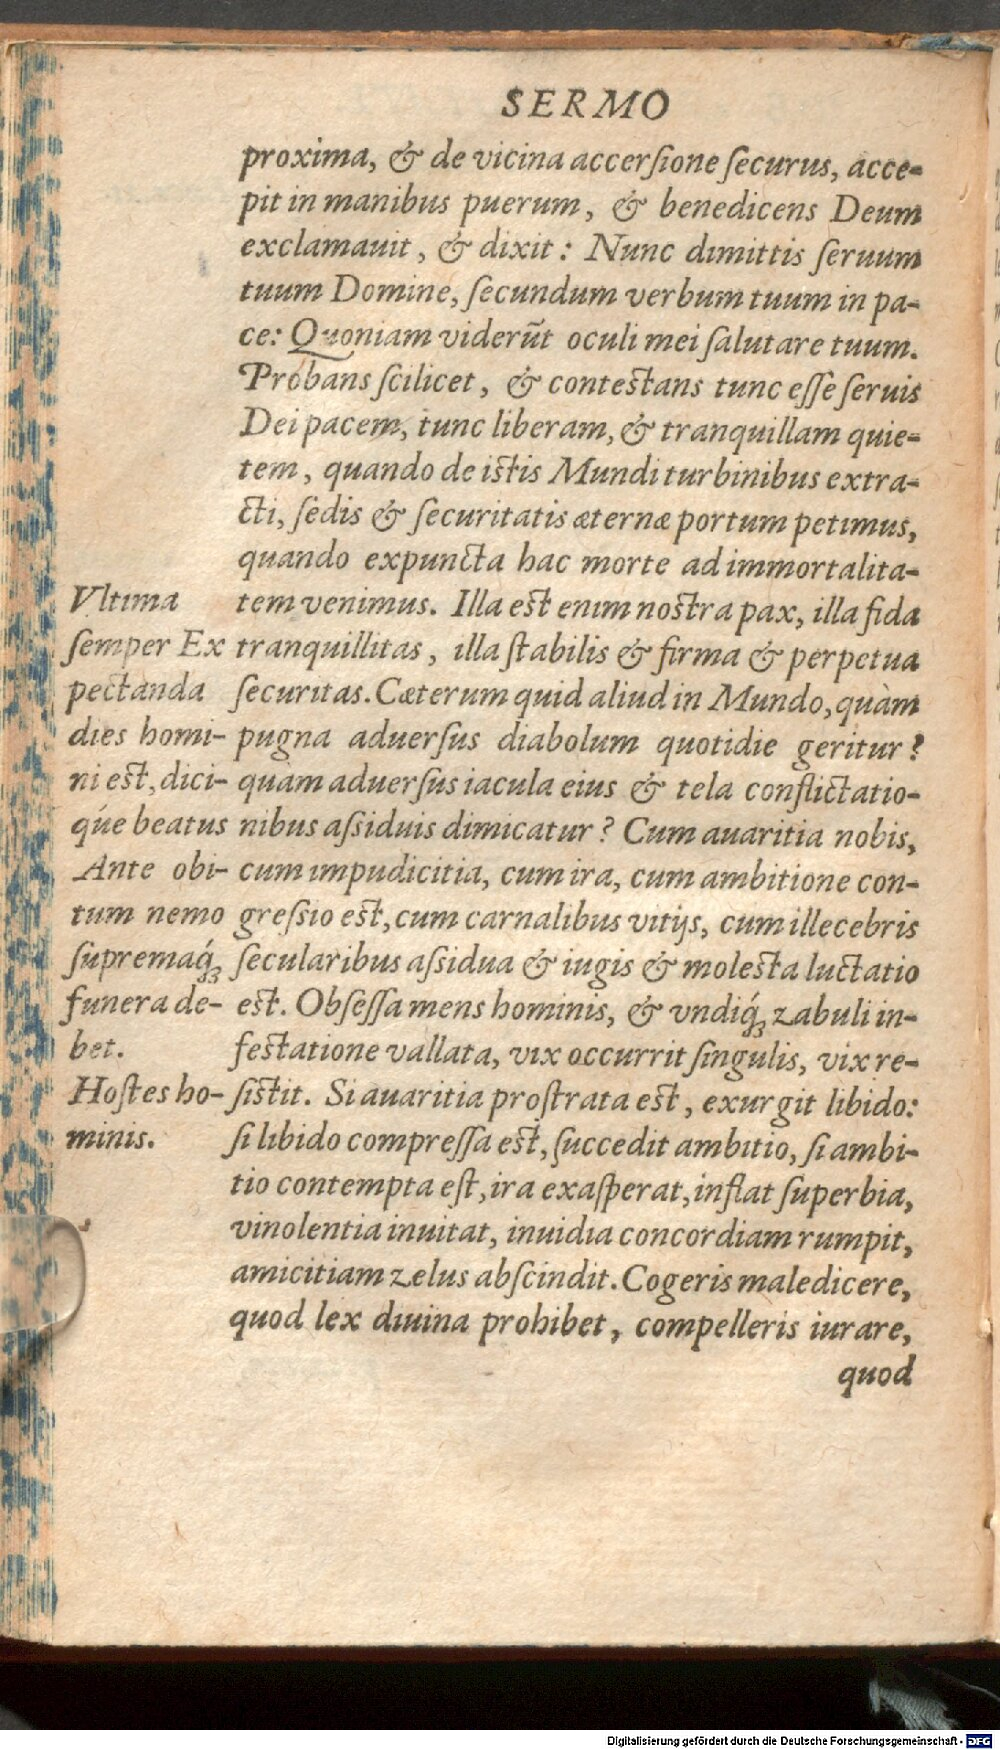 SERMO
proxima, & de vicina accersione securus, acce-
pit in manibus puerum, & benedicens Deum
exclamauit, & dixit: Nunc dimittis seruum
tuum Domine, secundum verbum tuum in pa-
ce: Quoniam viderūt oculi mei salutare tuum.
Probans scilicet, & contestans tunc esse seruis
Dei pacem, tunc liberam, & tranquillam quie-
tem, quando de istis Mundi turbinibus extra-
cti, sedis & securitatis æternæ portum petimus,
quando expuncta hac morte ad immortalita-
tem venimus. Illa est enim nostra pax, illa fida
tranquillitas, illa stabilis & firma & perpetua
securitas. Cæterum quid aliud in Mundo, quàm
pugna aduersus diabolum quotidie geritur?
quam aduersus iacula eius & tela conflictatio-
nibus assiduis dimicatur? Cum auaritia nobis,
cum impudicitia, cum ira, cum ambitione con-
gressio est, cum carnalibus vitijs, cum illecebris
secularibus assidua & iugis & molesta luctatio
est. Obsessa mens hominis, & vndiq́; zabuli in-
festatione vallata, vix occurrit singulis, vix re-
sistit. Si auaritia prostrata est, exurgit libido:
si libido compressa est, succedit ambitio, si ambi-
tio contempta est, ira exasperat, inflat superbia,
vinolentia inuitat, inuidia concordiam rumpit,
amicitiam zelus abscindit. Cogeris maledicere,
quod lex diuina prohibet, compelleris iurare,
quod
Vltima
semper Ex
pectanda
dies homi-
ni est, dici-
qúe beatus
Ante obi-
tum nemo
supremaq́;
funera de-
bet.
Hostes ho-
minis.
Digitalisierung gefördert durch die Deutsche Forschungsgemeinschaft - DFG